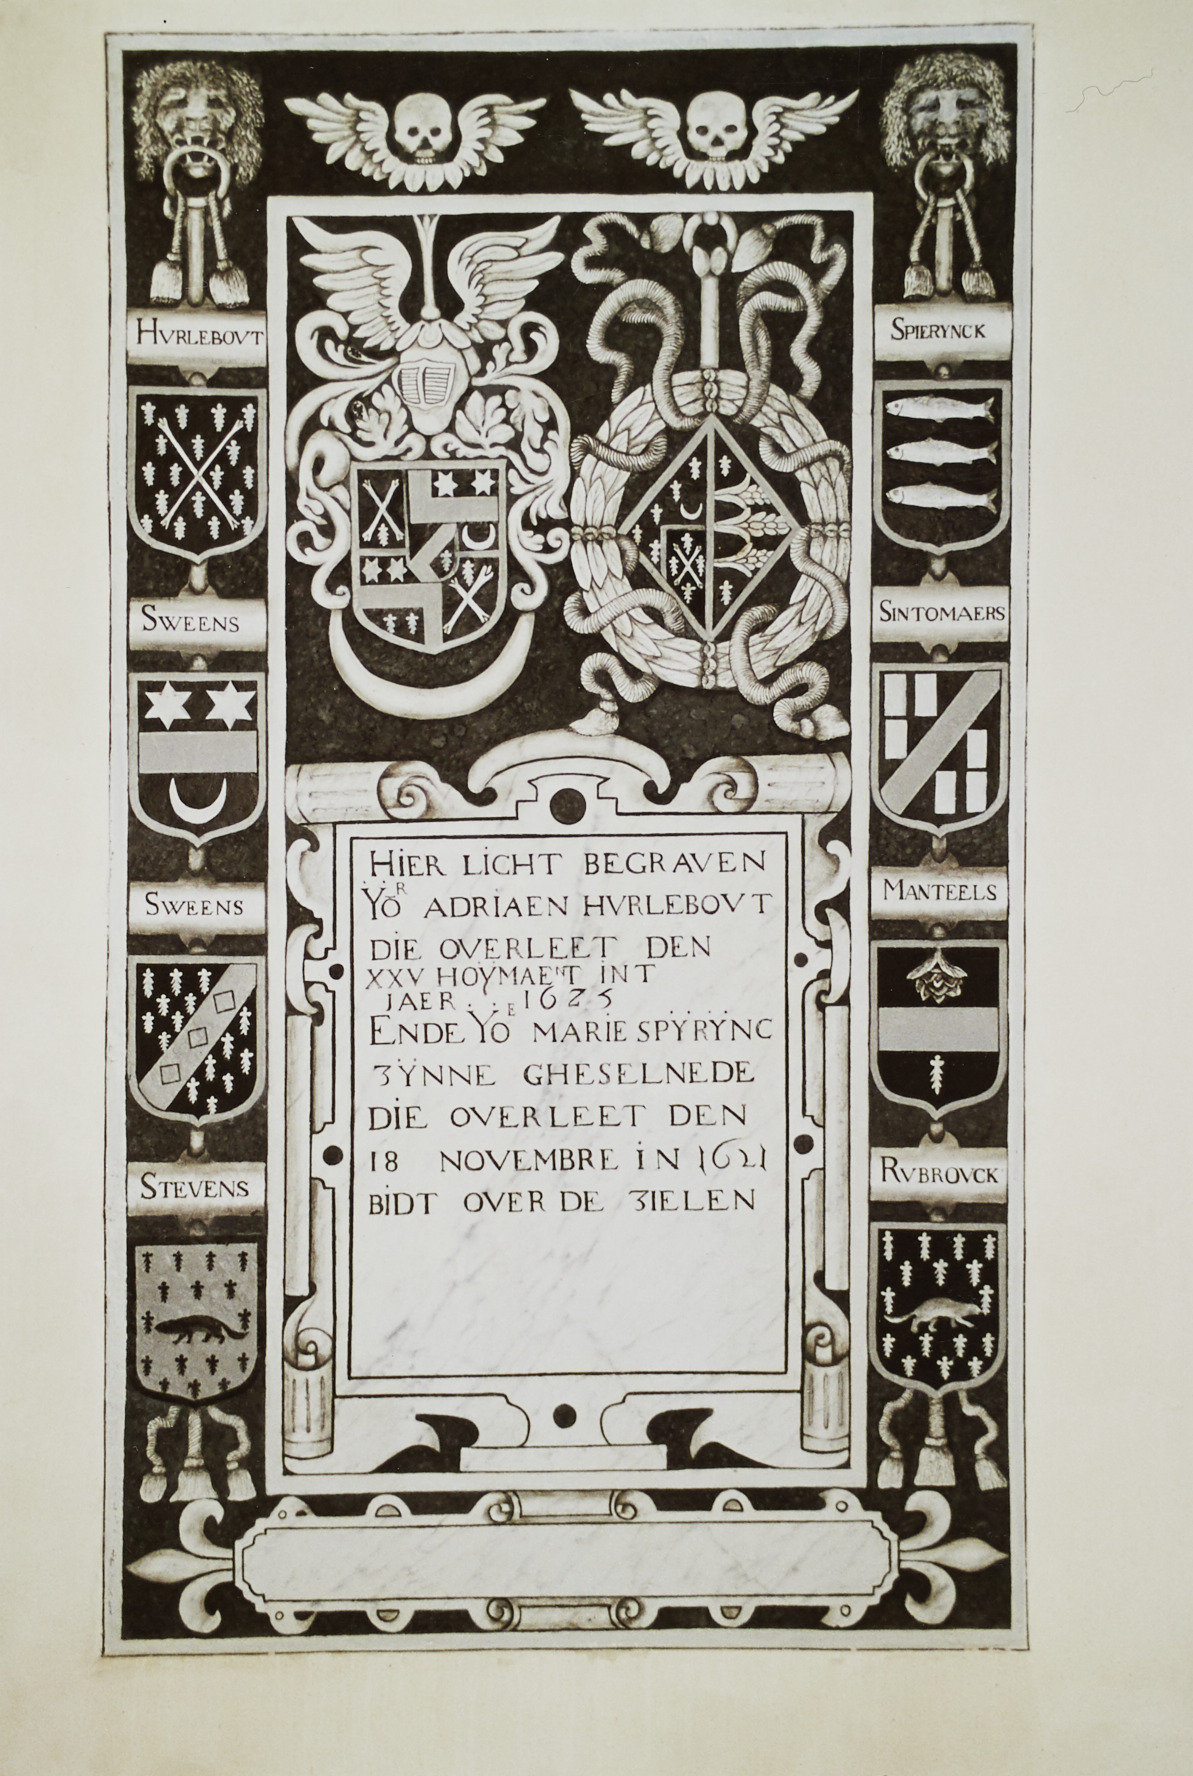 HVRLEBOVT
SWEENS
SWEENS
STEVENS
SPIERYNCK
SINTOMAERS
MANTEELS
RVBROVCK
HIER LICHT BEGRAVEN
ŸOR ADRIAEN HVRLEBOVT
DIE OVERLEET DEN
XXV HOŸMAENT INT
IAER 1625
ENDE YOE MARIE SPŸRŸNC
ZŸNNE GHESELNEDE
DIE OVERLEET DEN
18 NOVEMBRE IN 1621
BIDT OVER DE ZIELEN